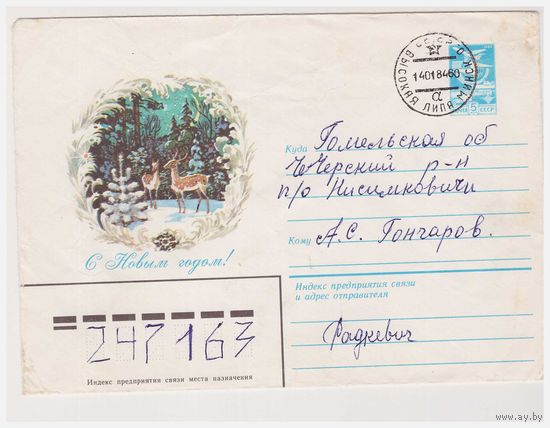 ВЫСОКАЯ ЛИПА МИНСК О
СССР
140184
ПОЧТА 5 СССР
Куда Гомельская об
Чечерский р-н
п/о Нисимковичи
Кому А.С. Гончаров.
С Новым годом!
Индекс предприятия связи
и адрес отправителя
Радкевич
247163
Индекс предприятия связи места назначения
www.ay.by